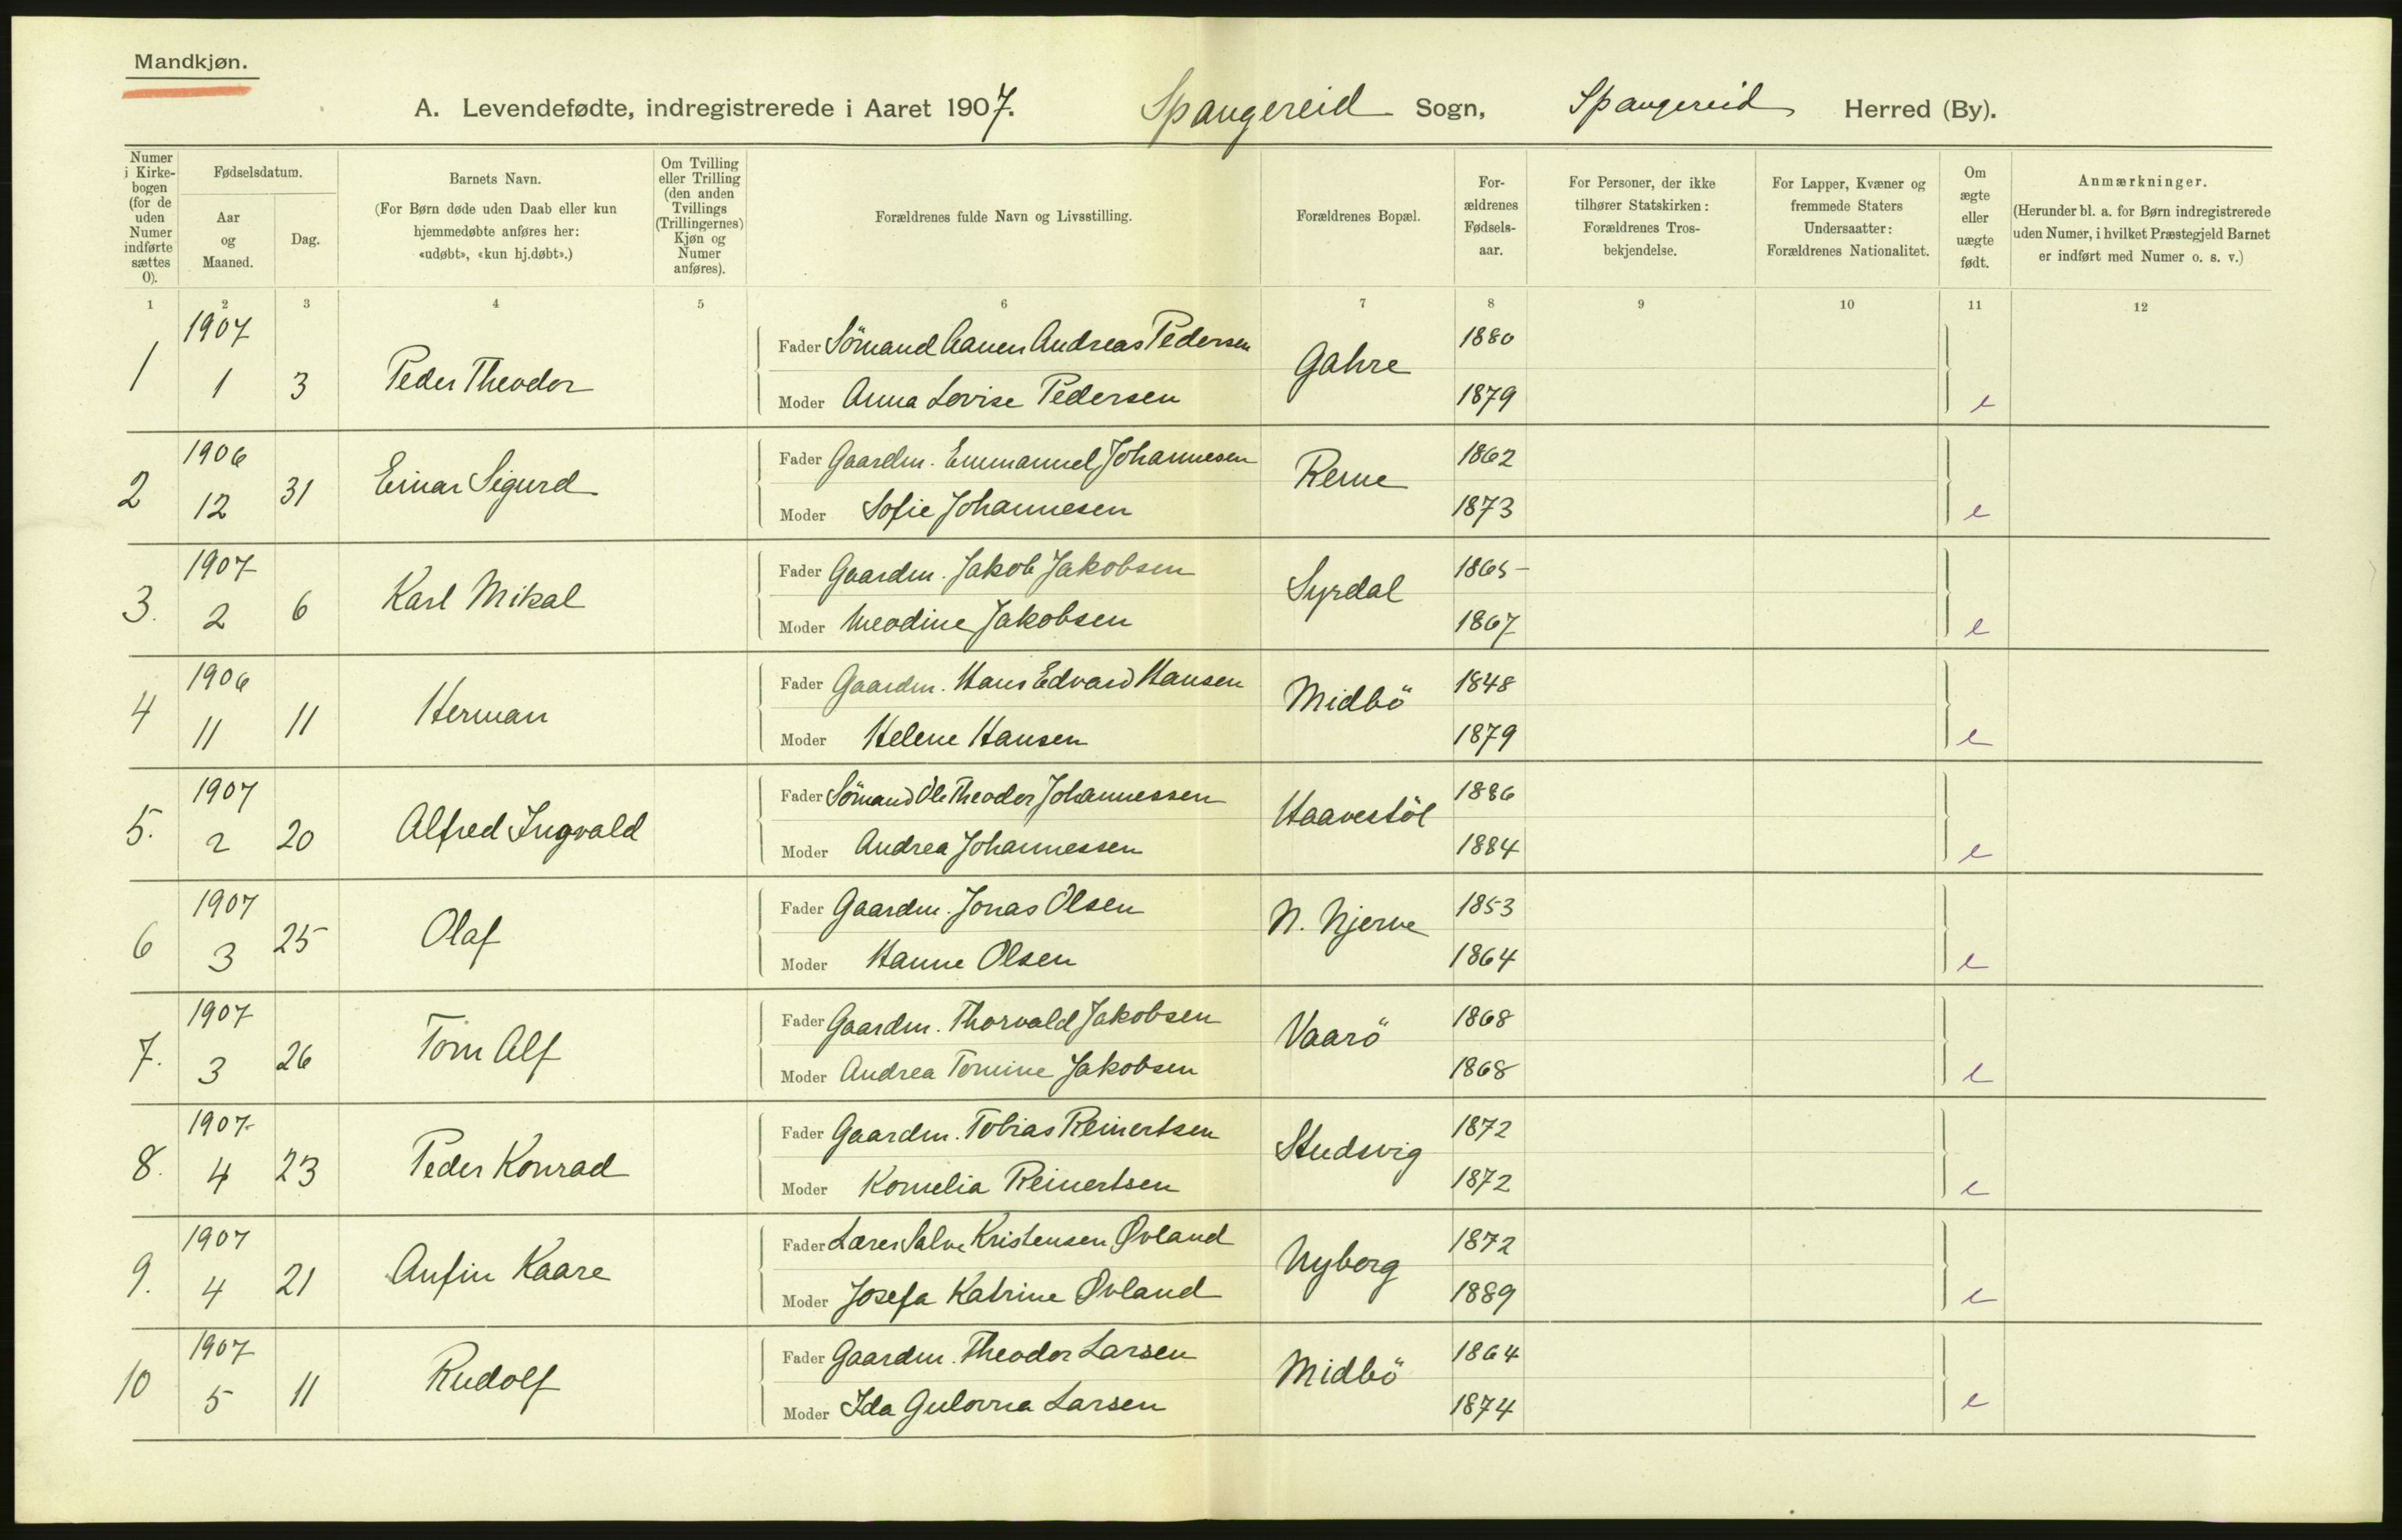 Mandkjøn.
A. Levendefødte, indregistrerede i Aaret 1907. Spangereid Sogn, Spangereid Herred (By).
Numer i Kirkebogen (for de uden Numer indførte sættes 0).
Fødselsdatum.
Aar og Maaned.
Dag.
Barnets Navn.
(For Børn døde uden Daab eller kun hjemmedøbte anføres her: «udøbt», «kun hj.døbt».)
Om Tvilling eller Trilling (den anden Tvillings (Trillingernes) Kjøn og Numer anføres).
Forældrenes fulde Navn og Livsstilling.
Forældrenes Bopæl.
Forældrenes Fødselsaar.
For Personer, der ikke tilhører Statskirken: Forældrenes Trosbekjendelse.
For Lapper, Kvæner og fremmede Staters Undersaatter: Forældrenes Nationalitet.
Om ægte eller uægte født.
Anmærkninger.
(Herunder bl. a. for Børn indregistrerede uden Numer, i hvilket Præstegjeld Barnet er indført med Numer o. s. v.)
1 2 3 4 5 6 7 8 9 10 11 12
1 1907 1 3 Peder Theodor Fader Sömand Andreas Pedersen Gahre 1880
Moder Anna Lovise Pedersen 1879 e
2 1906 12 31 Einar Sigurd Fader Gaardm. Emmanuel Johannesen Rerne 1862
Moder Sofie Johannesen 1873 e
3. 1907 2 6 Karl Mikal Fader Gaardm. Jakob Jakobsen Syrdal 1865
Moder Jakobsen 1867 e
4 1906 11 11 Herman Fader Gaardm. Hans Edvard Hansen Midbö 1848
Moder Helene Hansen 1879 e
5. 1907 2 20 Alfred Ingvald Fader Sömand Ole Theodor Johannessen Haavestöl 1886
Moder Andrea Johannessen 1884 e
6 1907 3 25 Olaf Fader Gaardm. Jonas Olsen N. Njerve 1853
Moder Hanne Olsen 1864 e
7. 1907 3 26 Tom Alf Fader Gaardm. Thorvald Jakobsen Vaarö 1868
Moder Andrea Tomine Jakobsen 1868 e
8. 1907 4 23 Peder Konrad Fader Gaardm. Tobias Reinertsen Studsvig 1872
Moder Kornelia Reinertsen 1872 e
9. 1907 4 21 Anfin Kaare Fader Lærer Salve Kristensen Øvland Nyborg 1872
Moder Josefa Katrine Øvland 1889 e
10 1907 5 11 Rudolf Fader Gaardm. Theodor Larsen Midbö 1864
Moder Ida Gulovna Larsen 1874 e